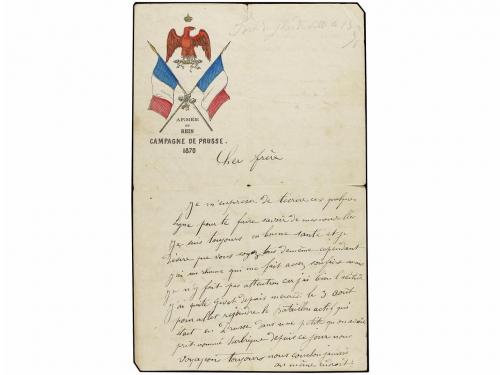 ARMÉE
DU
RHIN
CAMPAGNE DE PRUSSE.
1870
Cher frère
Je m'empresse de ces
ligne pour te faire savoir de mes nouvelles
Je suis toujours en bonne santé et je
désire que vous soyez tous de même cependant
j'ai un rhume qui me fait assez mais
je n'y fait pas attention car j'ai bien l'
j'ai quitté Givet depuis mercredi le 3 août
pour aller rejoindre le Bataillon actif qui
était en Prusse dans une petite
nommé Sarbrique depuis ce jour nous
voyageon toujours nous couchon jamais
au même endroit